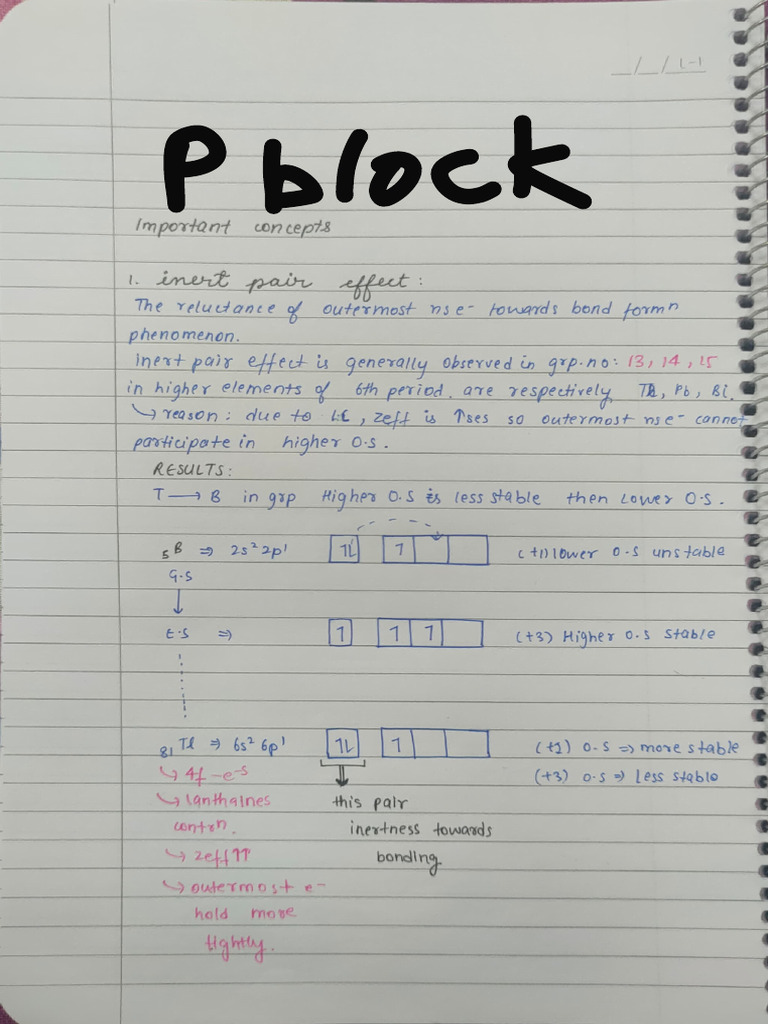 _/_/ L-1
P block
Important concepts
1. inert pair effect :
The reluctance of outermost ns e⁻ towards bond formⁿ
phenomenon.
Inert pair effect is generally observed in grp.no: 13, 14, 15
in higher elements of 6th period. are respectively Tl, Pb, Bi.
↳ reason : due to L.C, Zeff is ↑ses so outermost ns e⁻ cannot
participate in higher O.S.
RESULTS:
T → B in grp Higher O.S is less stable then Lower O.S.
₅B ⇒ 2s² 2p¹ 1L 1 (+1) lower O.S unstable
G.S
↓
E.S ⇒ 1 1 1 (+3) Higher O.S stable
₈₁Tl ⇒ 6s² 6p¹ 1L 1 (+1) O.S ⇒ more stable
↳ 4f -e⁻s (+3) O.S ⇒ less stable
↳ lanthaines this pair
contrⁿ. inertness towards
↳ Zeff ↑↑ bonding
↳ outermost e⁻
hold more
tightly.